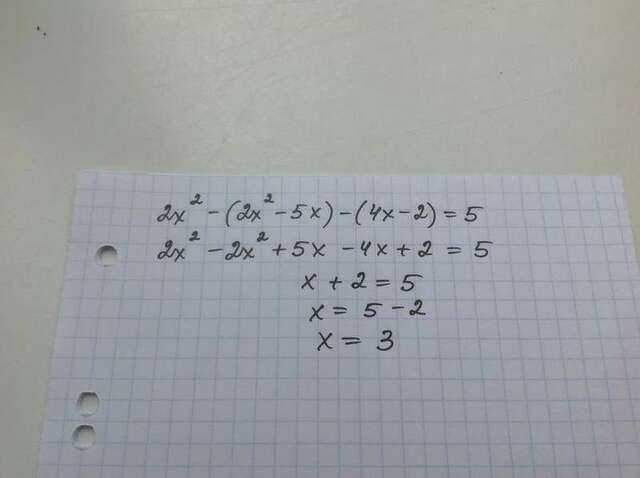 2x² - (2x² - 5x) - (4x - 2) = 5
2x² - 2x² + 5x - 4x + 2 = 5
x + 2 = 5
x = 5 - 2
x = 3